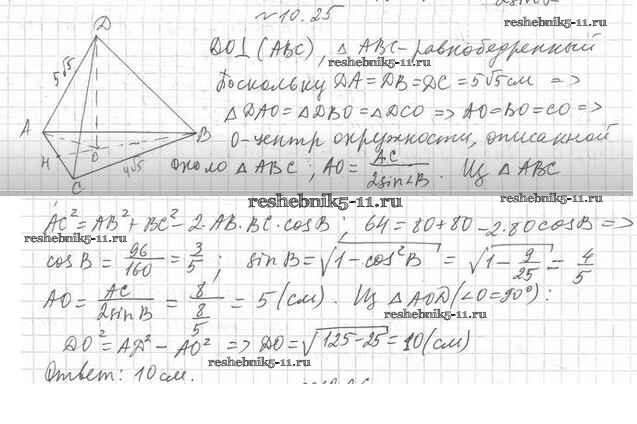 №10.25
reshebnik5-11.ru
D
5√5
A
B
O
H
C
4√5
DO⊥(ABC), △ABC - равнобедренный
reshebnik5-11.ru
Поскольку DA=DB=DC=5√5 см =>
△DAO=△DBO=△DCO => AO=BO=CO =>
O-центр окружности, описанной
около △ABC; AO = AC/2sin∠B. Из △ABC
reshebnik5-11.ru
reshebnik5-11.ru
AC²=AB²+BC²-2·AB·BC·cosB; 64=80+80-2·80cosB =>
reshebnik5-11.ru
cosB = 96/160 = 3/5; sinB = √1-cos²B = √1-9/25 = 4/5
AO = AC/2sinB = 8/(8/5) = 5 (см). Из △AOD (∠O=90°):
reshebnik5-11.ru
DO²=AD²-AO² => DO=√125-25=10 (см)
reshebnik5-11.ru
Ответ: 10 см.